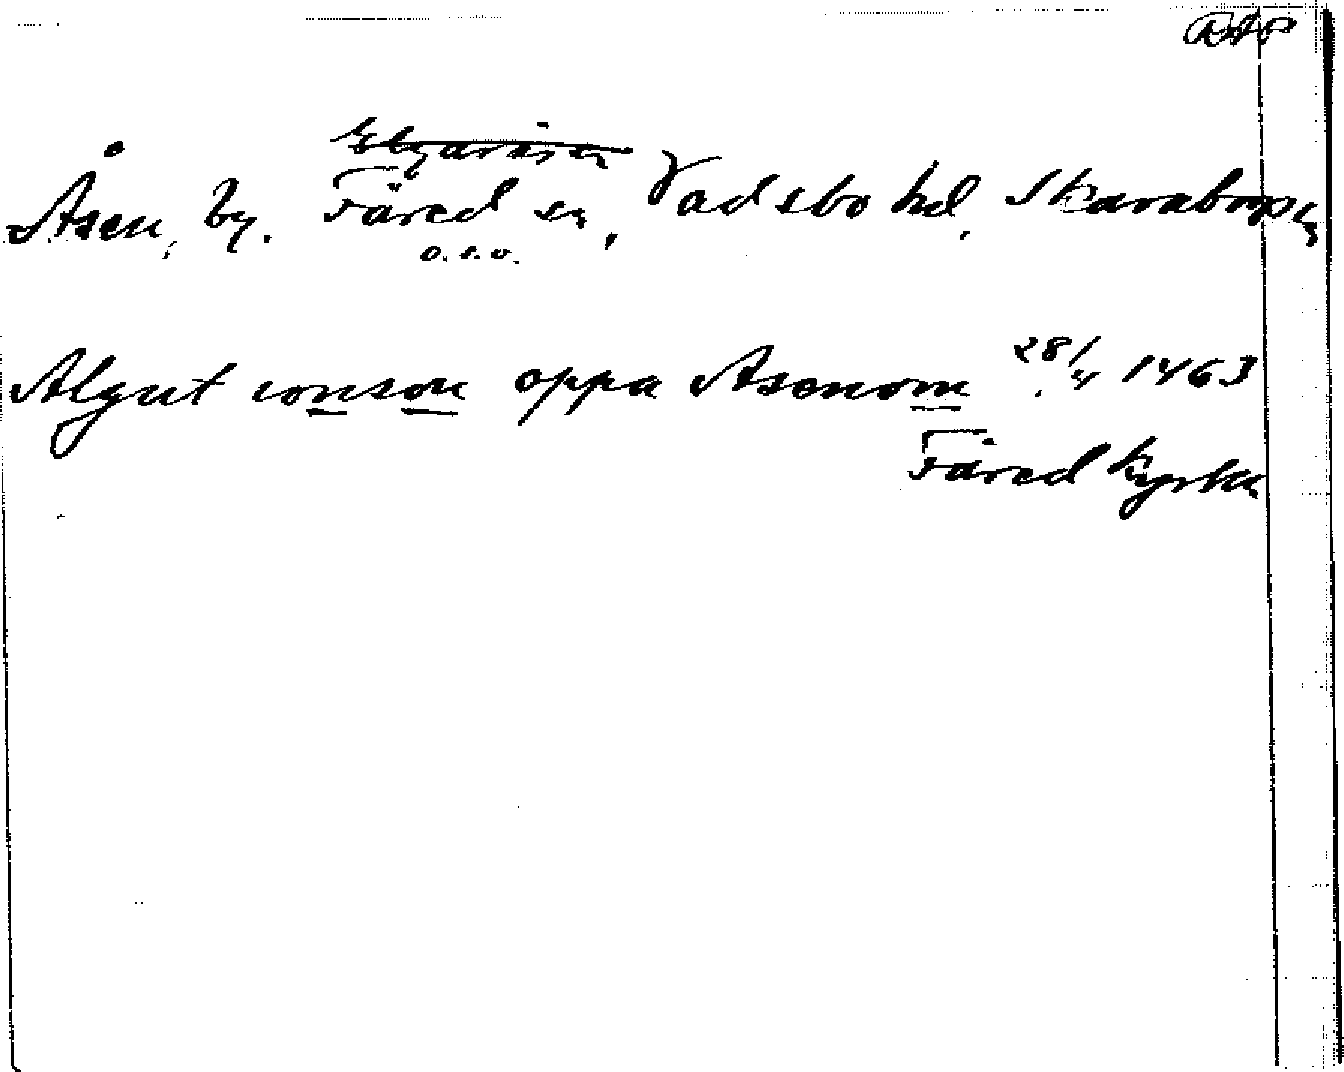 RAP
Åsen, by. Färed sn, Vadsbo hd, Skaraborgs
o.s.o.
Algut ionson oppa Asenom 28/4 1463
Färed kyrka